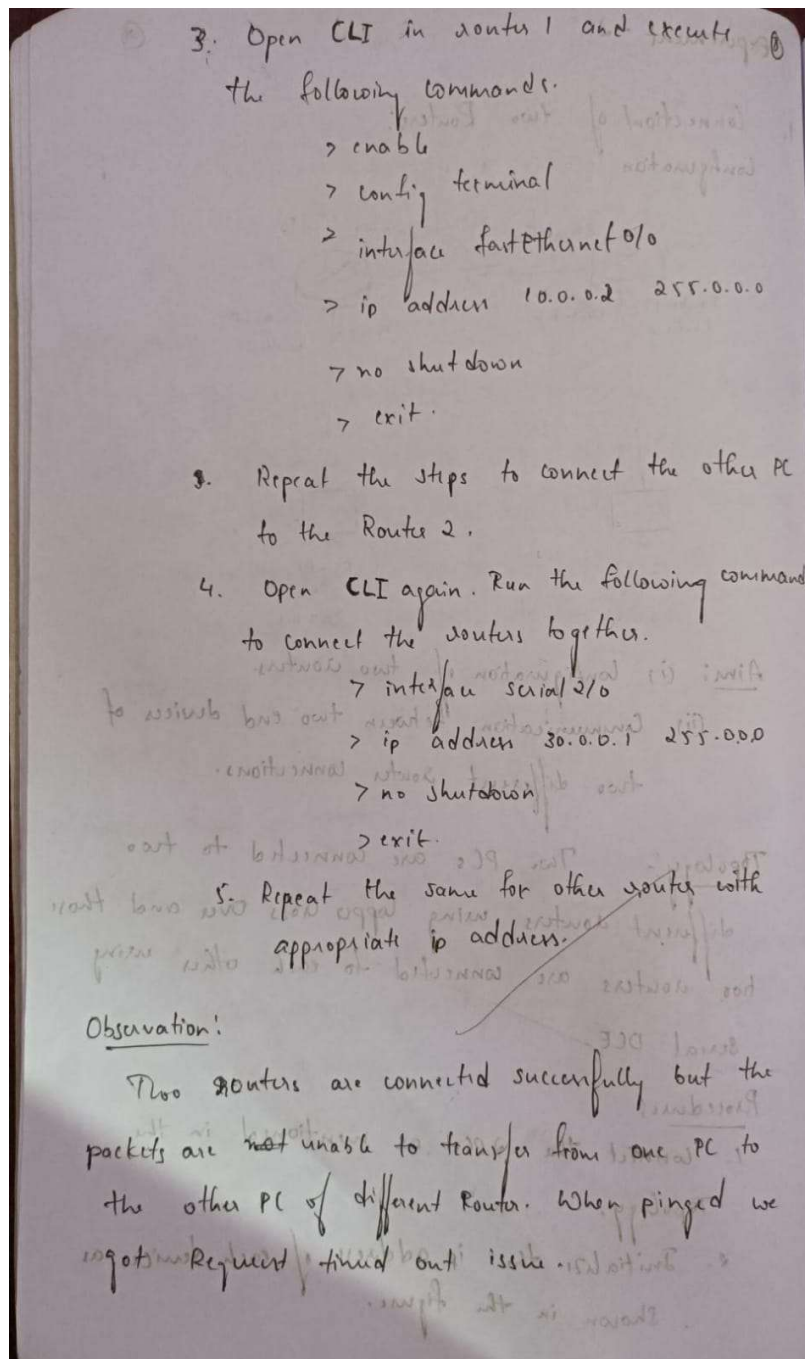 3. Open CLI in router 1 and execute
the following commands.
> enable
> config terminal
> interface fastEthernet 0/0
> ip address 10.0.0.2 255.0.0.0
> no shutdown
> exit.
3. Repeat the steps to connect the other PC
to the Router 2.
4. Open CLI again. Run the following command
to connect the routers together.
> interface serial 2/0
> ip address 30.0.0.1 255.0.0.0
> no shutdown
> exit.
5. Repeat the same for other router with
appropriate ip address.
Observation:
Two routers are connected successfully but the
packets are not unable to transfer from one PC to
the other PC of different Router. When pinged we
got Request timed out issue.